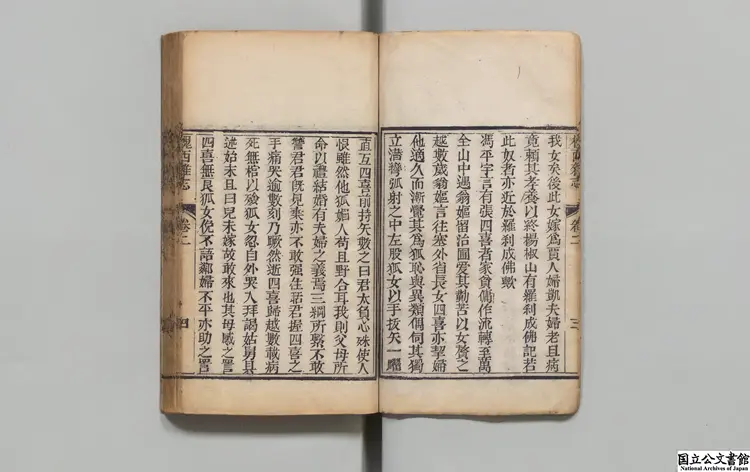 槐西雜志 卷二 三
我女矣後此女嫁爲賈人婦凱夫婦老且病
竟賴其孝養以終楊椒山有羅刹成佛記若
此奴者亦近於羅刹成佛歟
馮平宇言有張四喜者家貧傭作流轉至萬
全山中遇翁嫗留治圃愛其勤苦以女贅之
越數歲翁嫗言往塞外省長女四喜亦挈婦
他適久而漸覺其爲狐恥與異類偶伺其獨
立潛彎弧射之中左股狐女以手拔矢一躍
直至四喜前持矢數之曰君太負心殊使人
恨雖然他狐媚人苟且野合耳我則父母所
命以禮結婚有夫婦之義焉三綱所繫不敢
讐君君旣見棄亦不敢強住聒君握四喜之
手痛哭逾數刻乃蹶然逝四喜歸越數載病
死無棺以殮狐女忽自外哭入拜謁姑舅具
述始末且曰兒未嫁故敢來也其母感之詈
四喜無良狐女俛不語鄰婦不平亦助之詈
槐西雜志 卷二 四
国立公文書館
National Archives of Japan